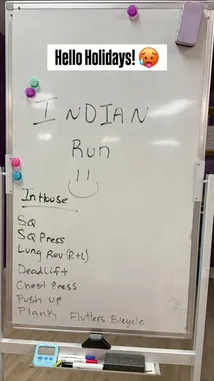 Hello Holidays! 🥵
INDIAN
Run
In House
SQ
SQ Press
Lung Rev (R+L)
Deadlift
Chest Press
Push up
Plank Flutters Bicycle